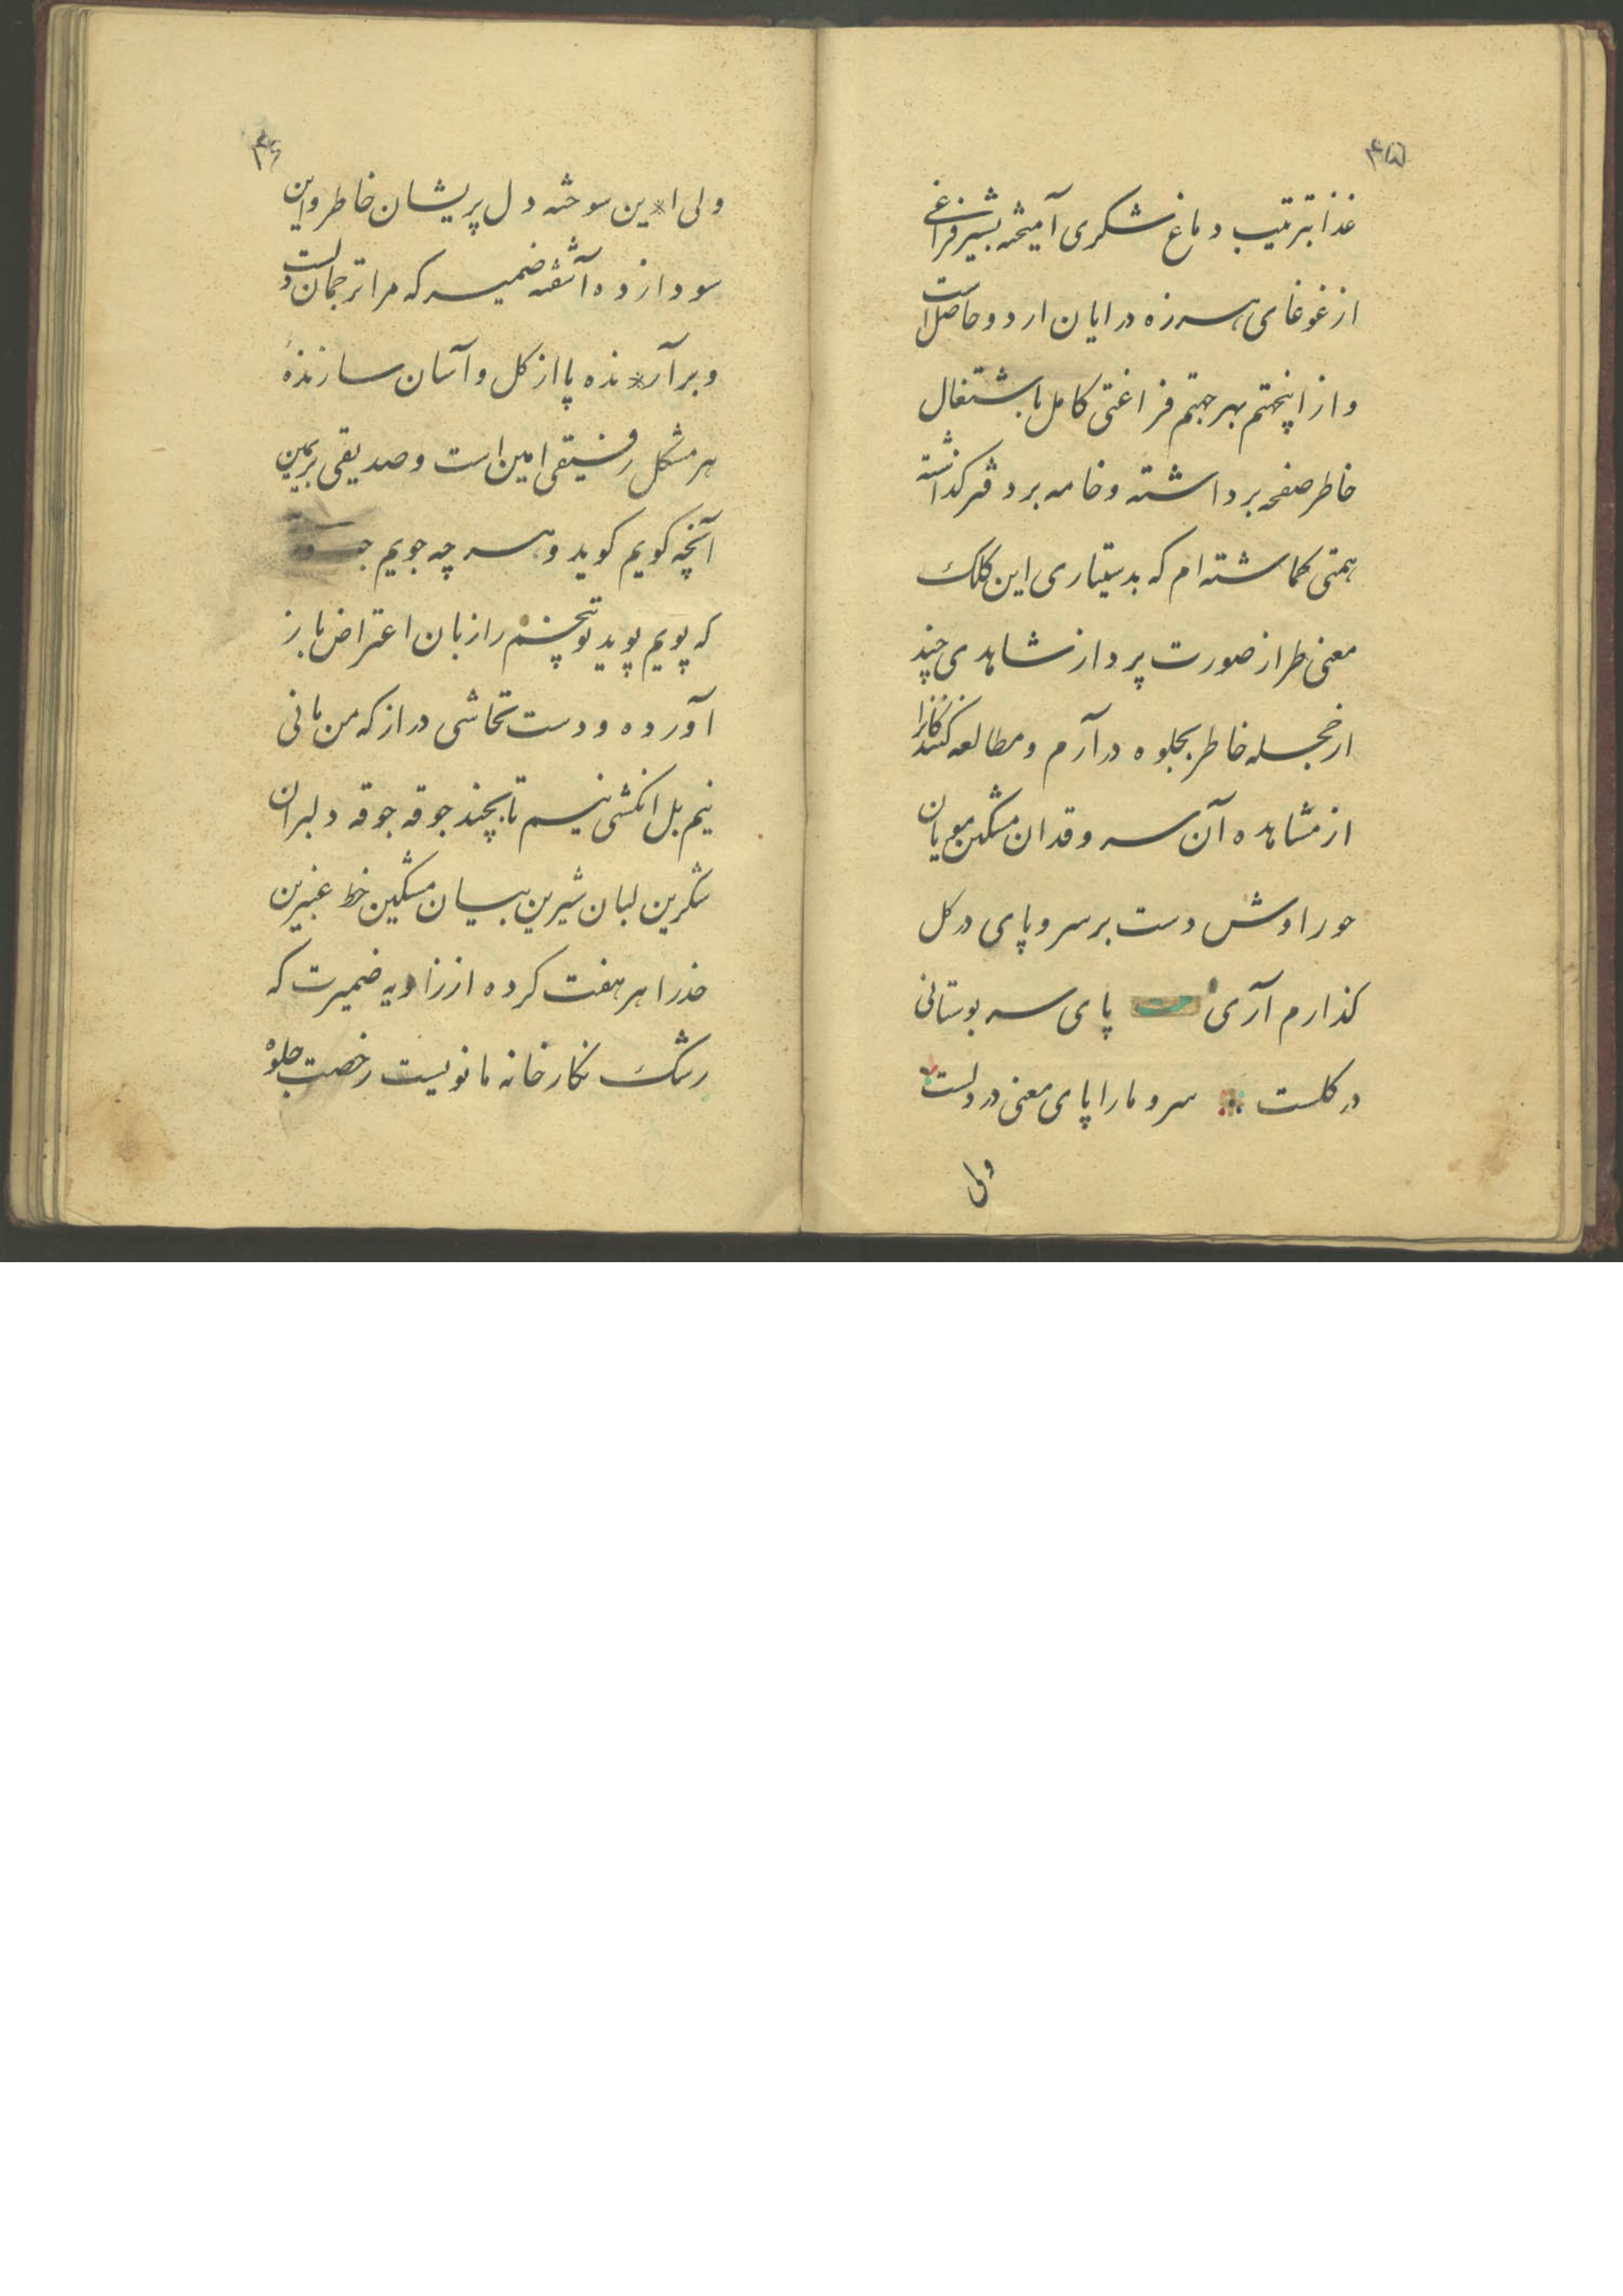 ۴۵
غذا بترتیب دماغ شکری آمیخته بشیر فراغی
از غوغای هرزه درایان اردو حاصل است
و از اینجهتم بهر جهتم فراغتی کامل باشتغال
خاطر صفحه برداشته و خامه بر دفتر گذاشته
همتی کماشته ام که بدستیاری این کلک
معنی طراز صورت پرداز شاهدی چند
از حجله خاطر بجلوه درآرم و مطالعه کنندگانرا
از مشاهده آن سروقدان مشکین مویان
حوراوش دست بر سر و پای در کل
کذارم آری بیت پای سرو بوستانی
در کلست سرو ما را پای معنی در دلست
ولی
۴۶
ولی این سوخته دل پریشان خاطر و این
سودازده آشفته ضمیر که مرا ترجمان دلست
و برآرنده پا از کل و آسان سازنده
هر مشکل رفیقی امین است و صدیقی بریمین
آنچه کویم کوید و هر چه جویم
که پویم پوید تو تخشم را زبان اعتراض باز
آورده و دست تحاشی دراز که من مانی
نیم بل انکشتی نیم تا بچند جوقه جوقه دلبران
شکرین لبان شیرین بیان مشکین خط عنبرین
را هر هفت کرده از زاویه ضمیرت که
رشک نکارخانه مانویست رخصت جلوه